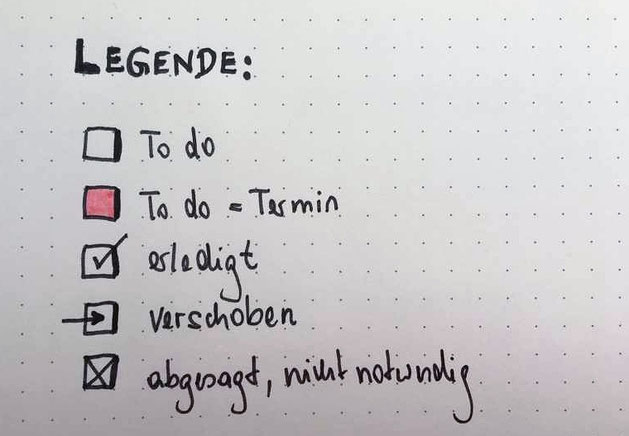 LEGENDE:
To do
To do = Termin
erledigt
verschoben
abgesagt, nicht notwndig